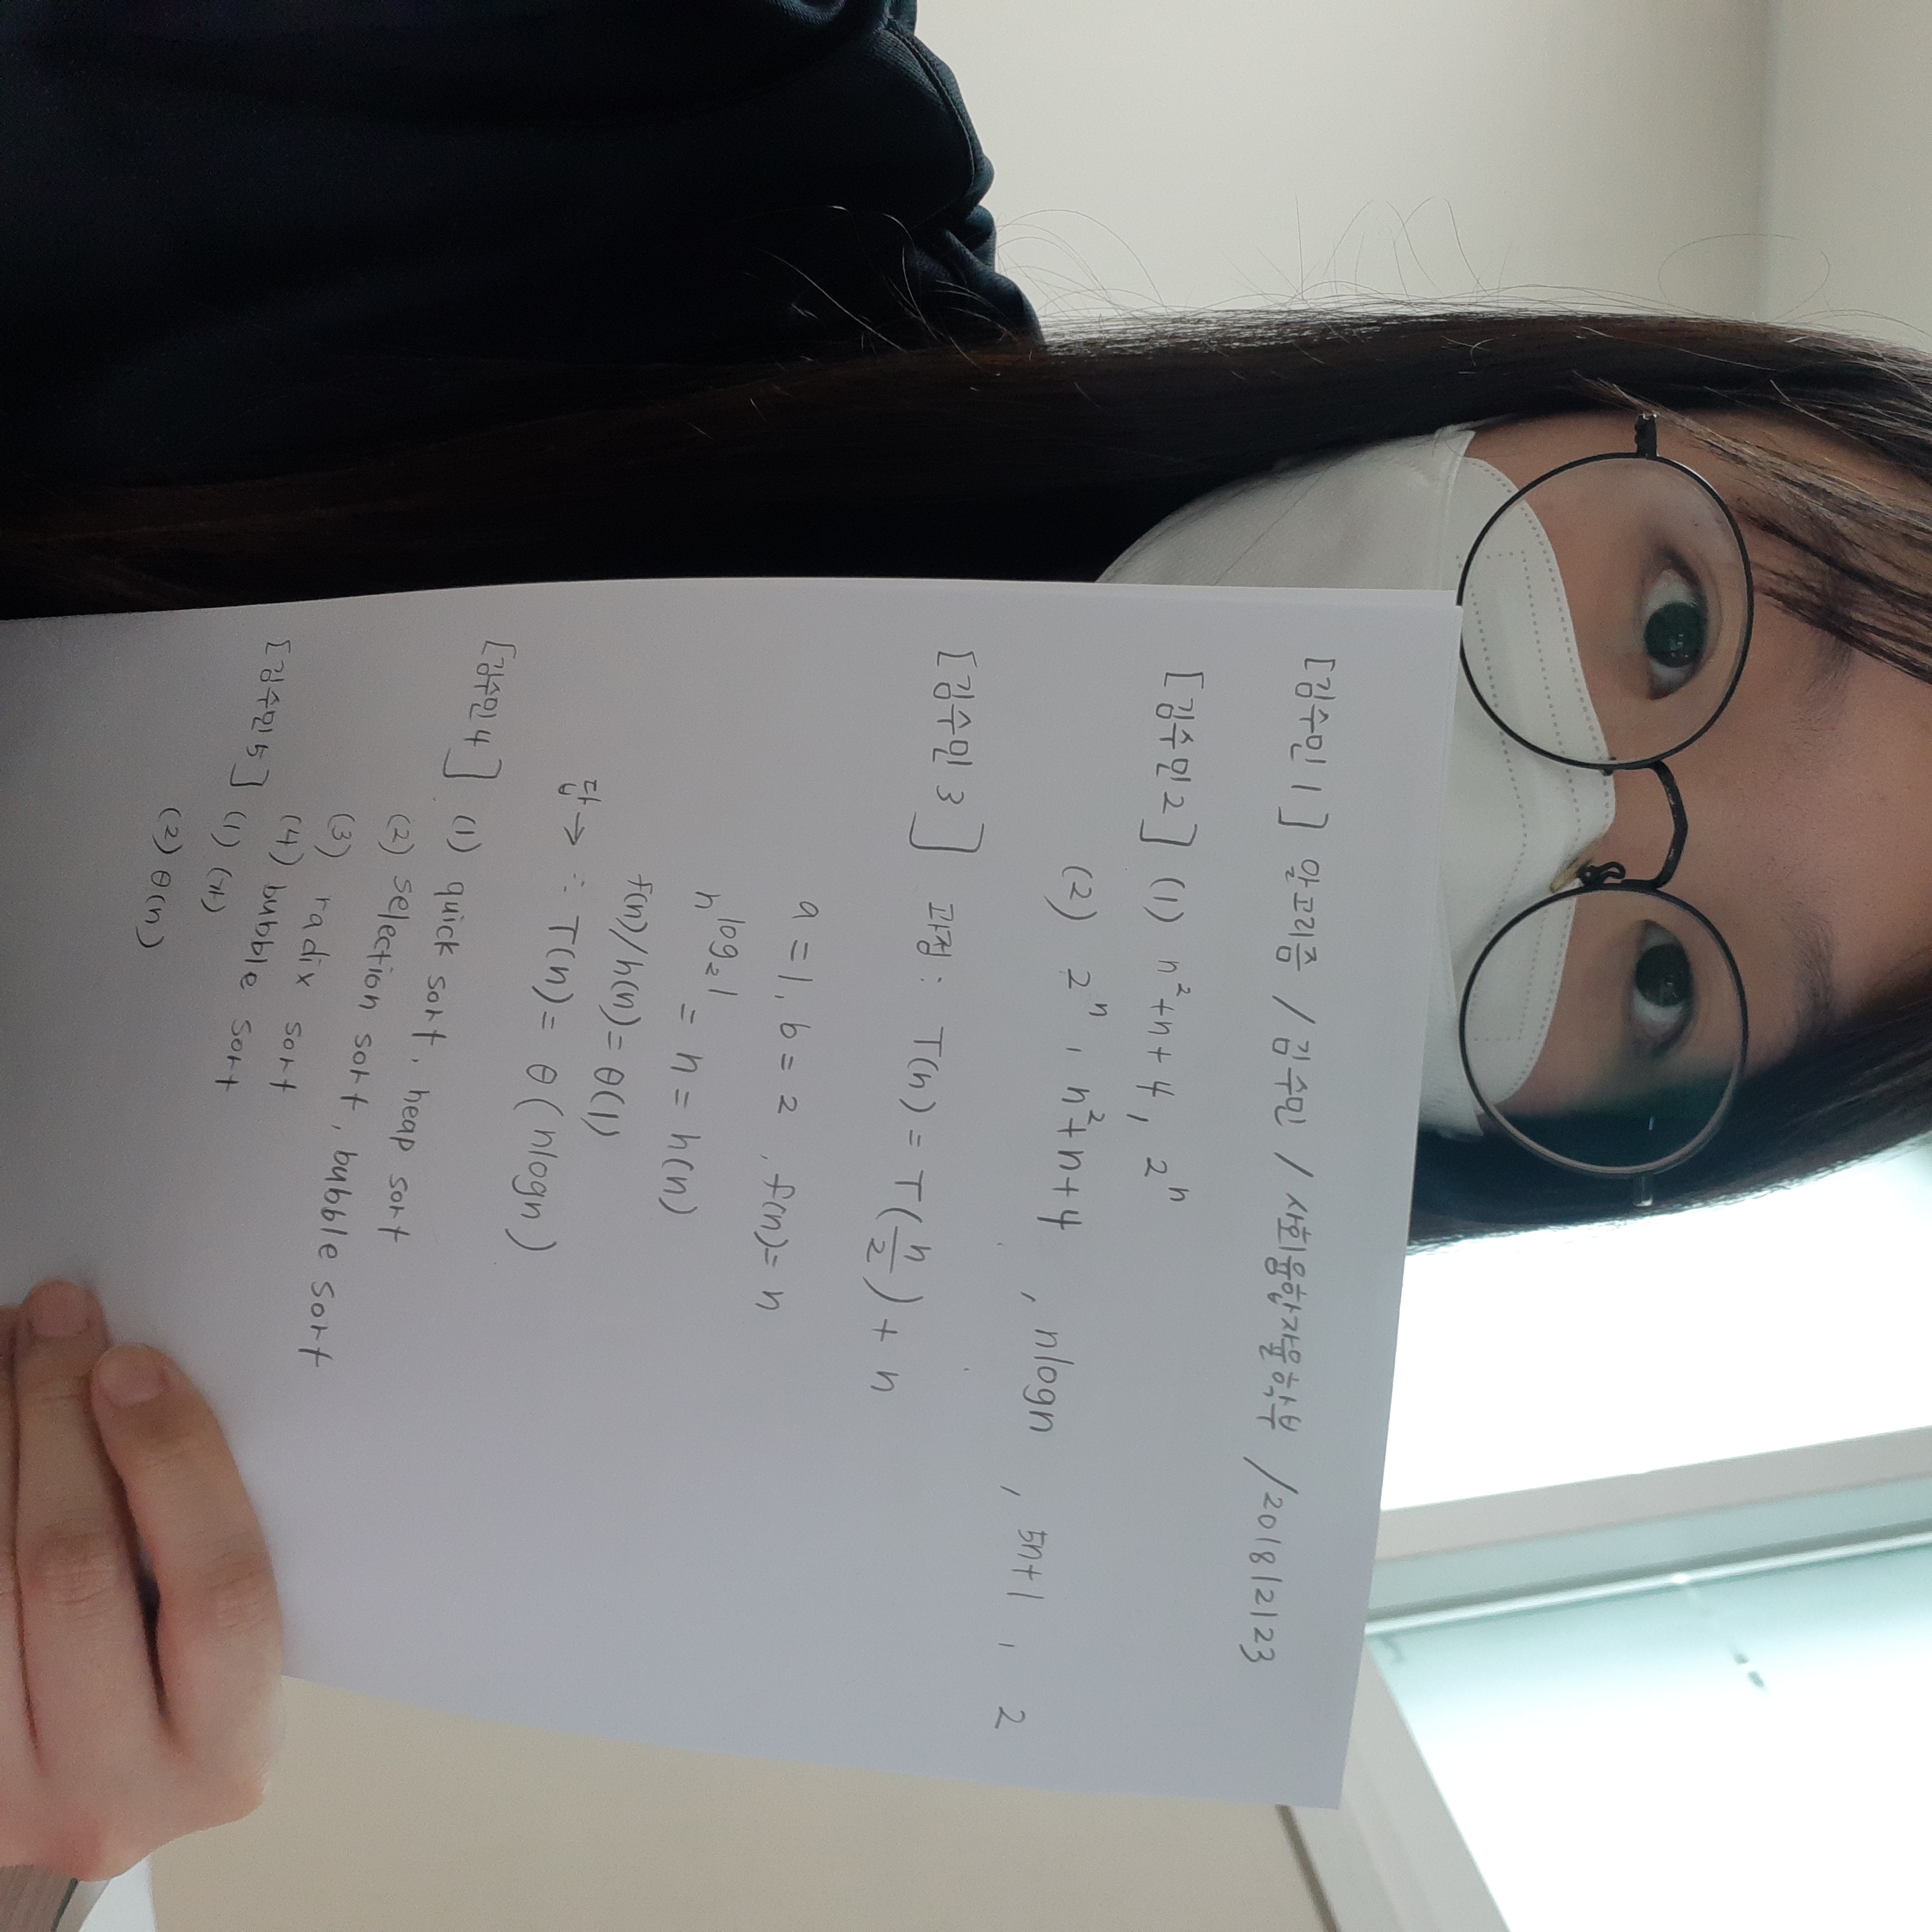 [김수민 1] 알고리즘 / 김수민 / 사회융합자율학부 / 201812123
[김수민 2] (1) n²+n+4, 2ⁿ
(2) 2ⁿ, n²+n+4, nlogn, 5n+1, 2
[김수민 3] 과정: T(n) = T(n/2) + n
a=1, b=2, f(n)=n
n^log₂1 = n = h(n)
f(n)/h(n) = θ(1)
답→ ∴ T(n) = θ(nlogn)
[김수민 4] (1) quick sort, heap sort
(2) selection sort, bubble sort
(3) radix sort
(4) bubble sort
[김수민 5] (1) (가)
(2) θ(n)